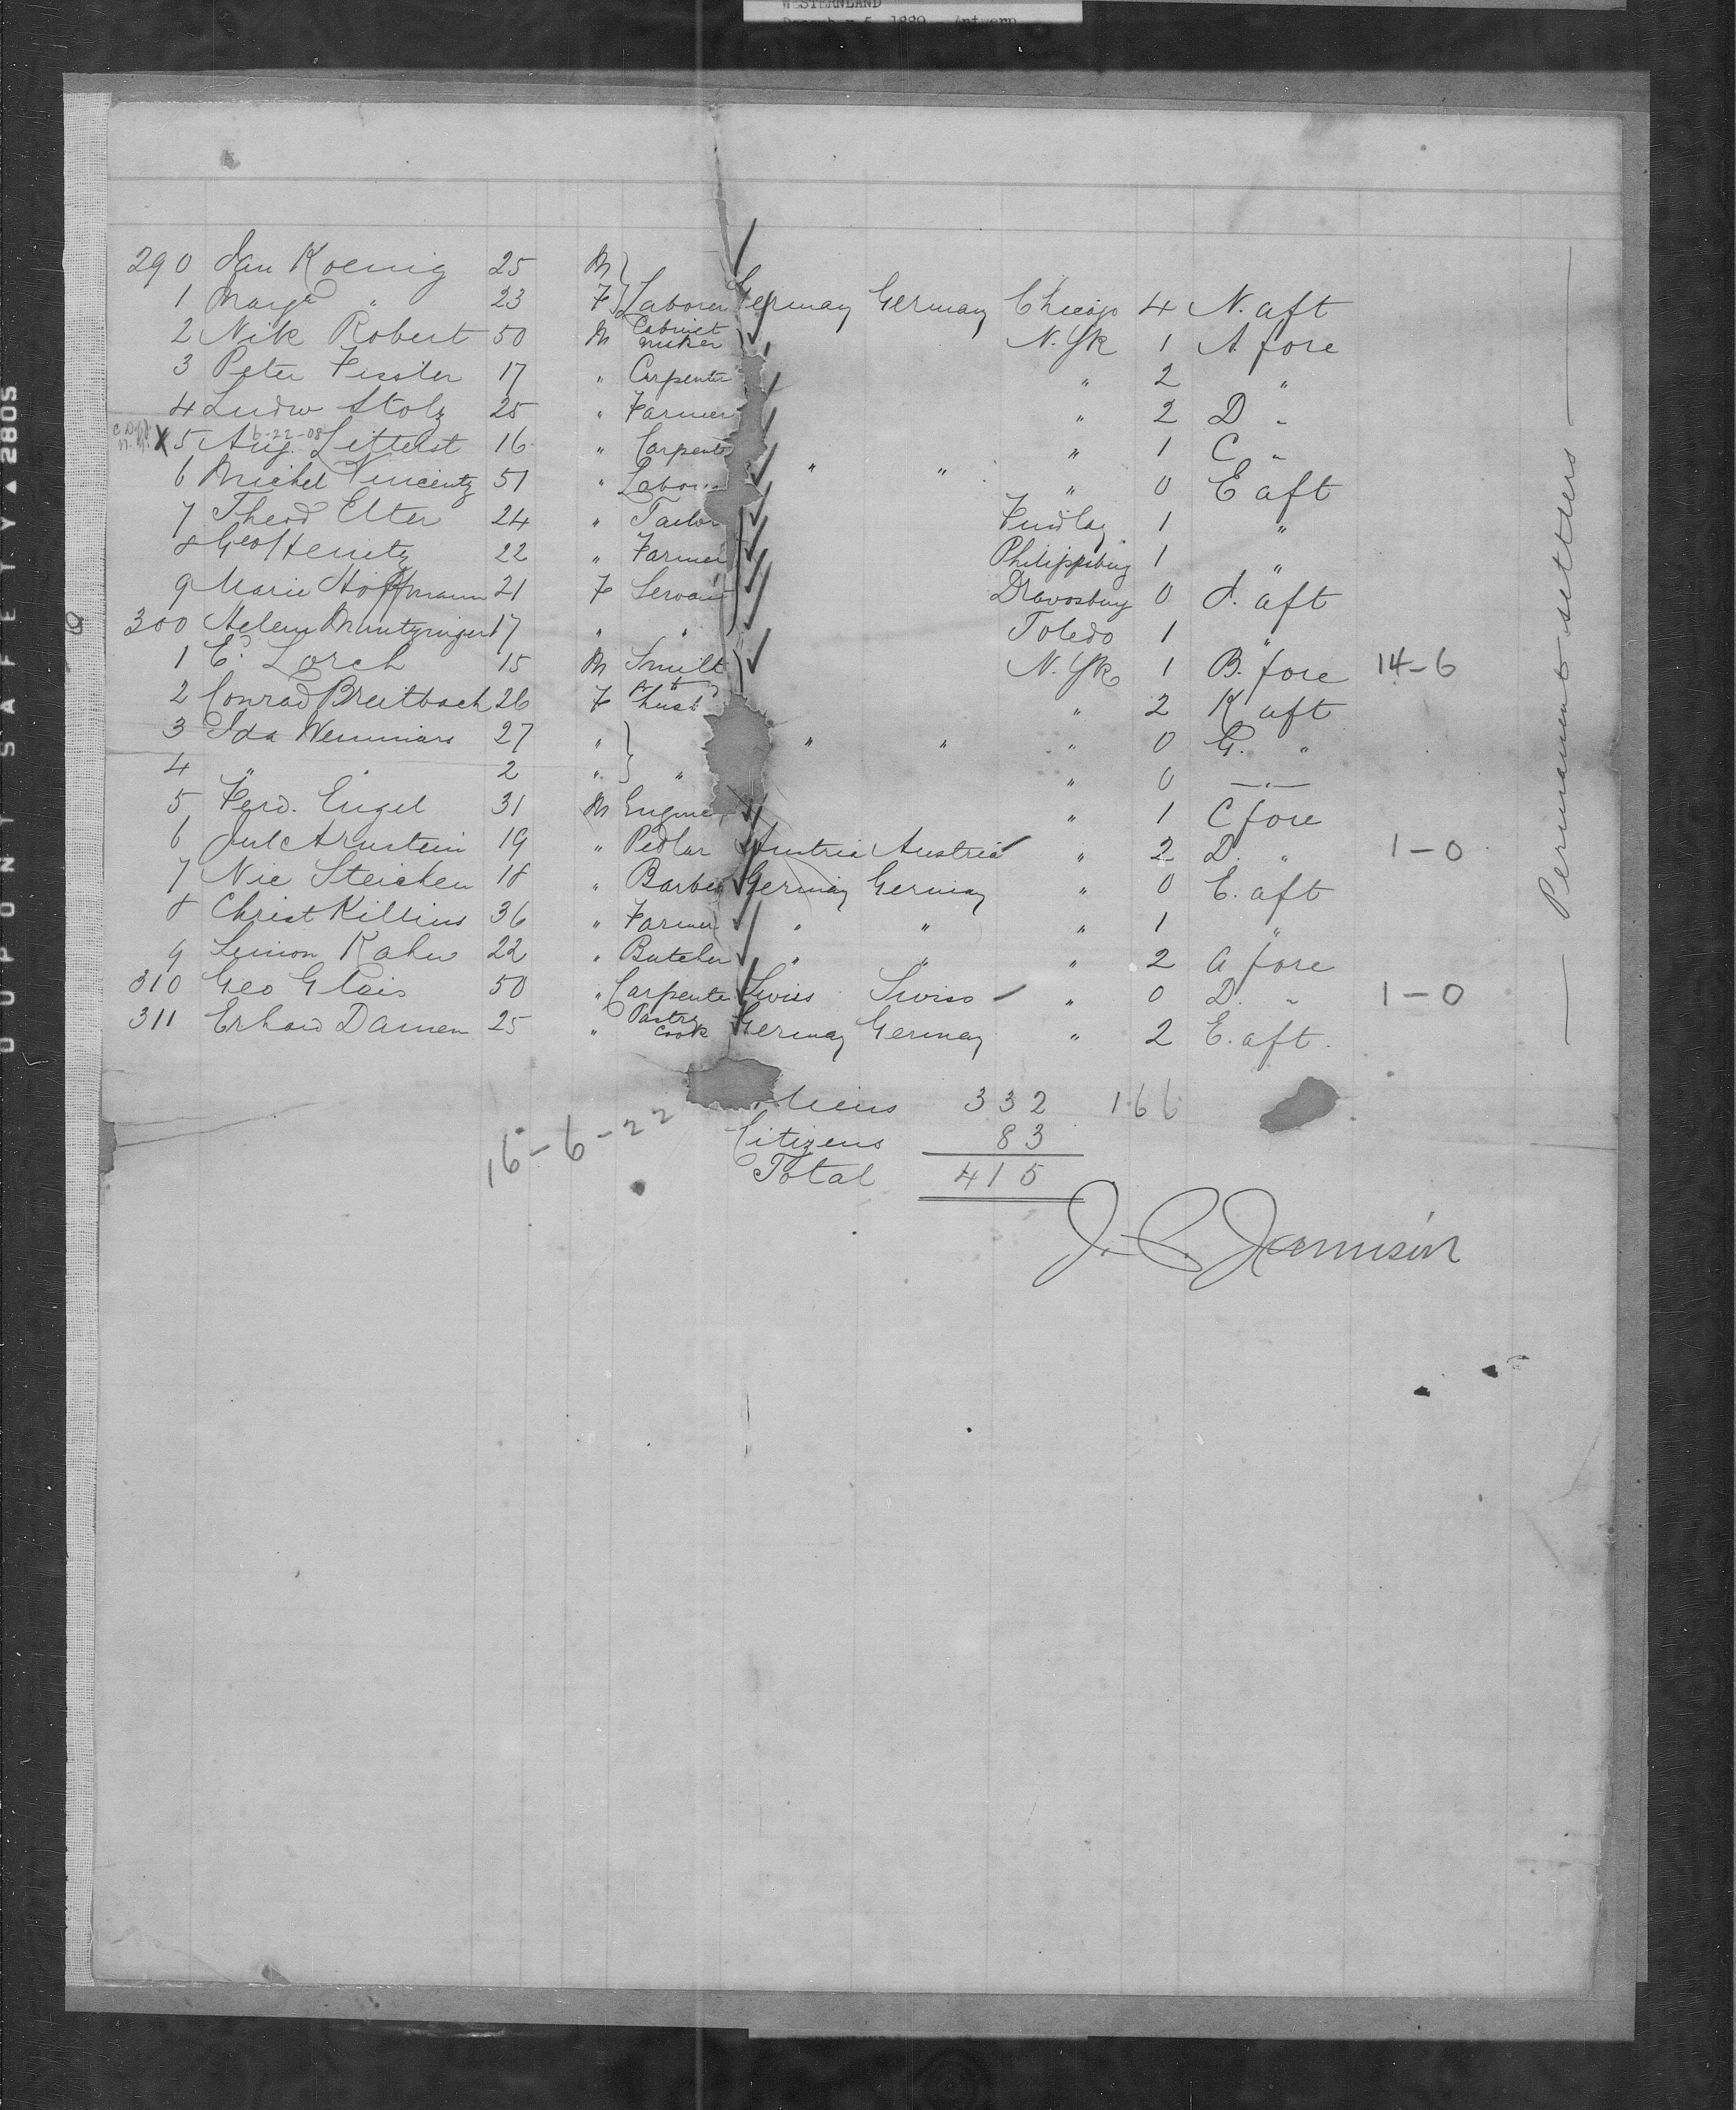 WESTERNLAND
December 5, 1889 Antwerp
DUPONT SAFETY ▲ 2805
290 Jan Koenig 25 M
1 Marga " 23 F Laborer Germany Germany Chicago 4 N. aft
2 Nik Robert 50 M Cabinet maker N. Yk 1 A fore
3 Peter Fissler 17 " Carpenter " 2 "
4 Ludw Stolz 25 " Farmer " 2 D "
6-22-08
X 5 Aug. Litterst 16 " Carpente " " " 1 C "
6 Michel Vincentz 51 " Labor " 0 E aft
7 Theod Elter 24 " Tailor Findlay 1 "
8 Geo Hemitz 22 " Farmer Philippsburg 1 "
9 Marie Hoffmann 21 F Servant Dravosburg 0 J. aft
300 Helena Muntzinger 17 " " Toledo 1 "
1 E. Lorch 15 M Smith N. Yk 1 B. fore 14-6
2 Conrad Breitbach 26 F to husb " 2 K aft
3 Ida Wemmars 27 " " " " 0 G. "
4 " " 2 " " " 0 —"—
5 Ferd. Engel 31 M Engine " 1 C fore
6 Jul Arnstein 19 " Pedlar Austria Austria " 2 D. " 1-0
7 Nic Steichen 18 " Barber Germany Germany " 0 E. aft
8 Christ Killius 36 " Farmer " " " 1 "
9 Simon Kahn 22 " Butcher " " " 2 A fore
310 Geo Glais 50 " Carpente Swiss Swiss " 0 D. " 1-0
311 Erhard Damen 25 " Pastry cook Germany Germany " 2 E. aft.
Aliens 332 166
16-6-22
Citizens 83
Total 415
J. C. Jamison
— Permanent settlers —